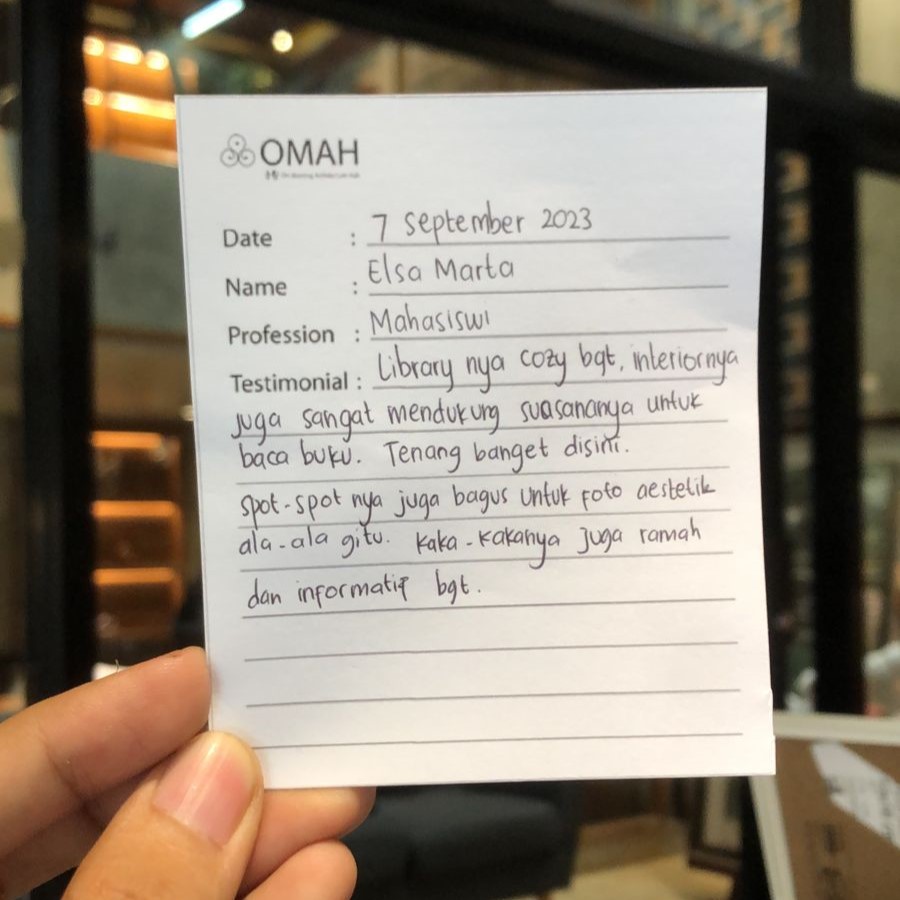 OMAH
Date : 7 September 2023
Name : Elsa Marta
Profession : Mahasiswi
Testimonial : Library nya cozy bgt, interiornya
juga sangat mendukung suasananya untuk
baca buku. Tenang banget disini.
Spot-spot nya juga bagus untuk foto aestetik
ala-ala gitu. Kaka-kakanya juga ramah
dan informatif bgt.